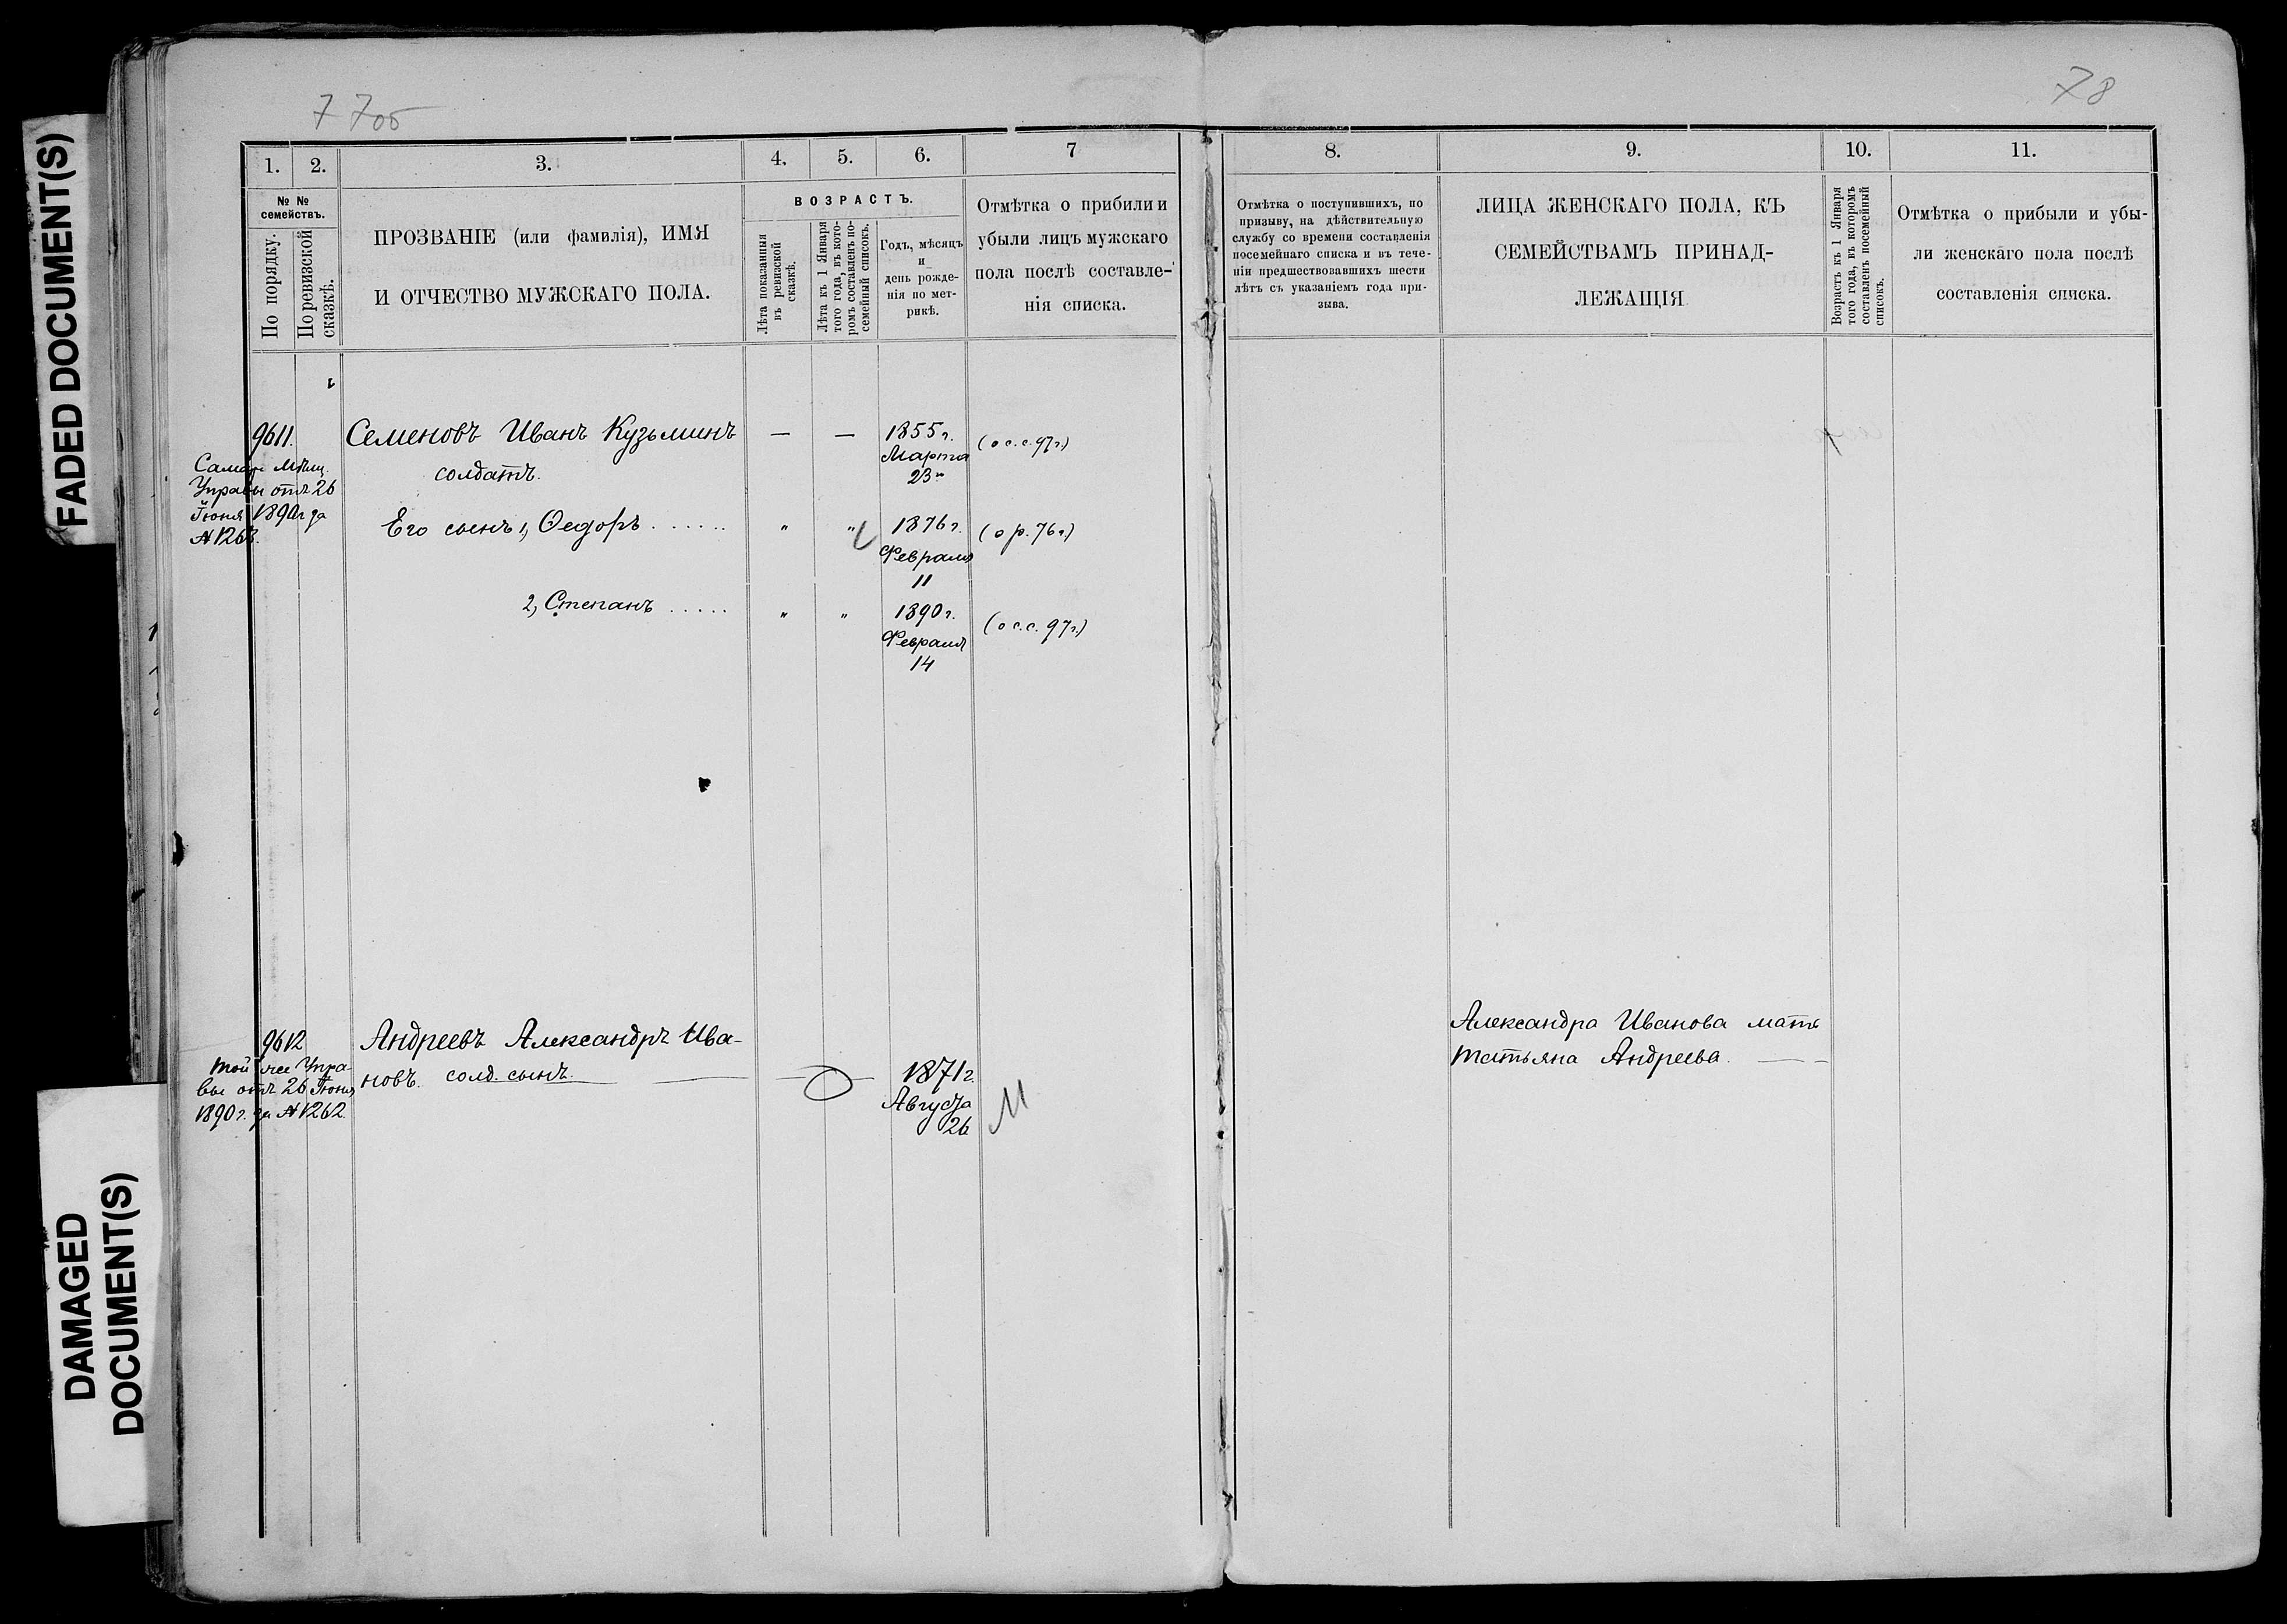 FADED DOCUMENT(S)
DAMAGED
DOCUMENT(S)
77об
1. 2. 3. 4. 5. 6. 7
№ №
семействъ.
По порядку.
По ревизской
сказкѣ.
ПРОЗВАНІЕ (или фамилія), ИМЯ
И ОТЧЕСТВО МУЖСКАГО ПОЛА.
ВОЗРАСТЪ.
Лѣта показанныя
въ ревизской
сказкѣ.
Лѣта къ 1 Января
того года, въ кото-
ромъ составленъ по-
семейный списокъ.
Годъ, мѣсяцъ
и
день рожде-
нія по мет-
рикѣ.
Отмѣтка о прибыли и
убыли лицъ мужскаго
пола послѣ составле-
нія списка.
9611.
Самар Мѣщ.
Управы отъ 26
Іюня 1890г за
№1263.
Семеновъ Иванъ Кузьминъ — — 1855г. (о с.с. 97г.)
солдатъ. Марта
23
Его сынъ 1, Ѳедоръ ...... " " 1876г. (о р. 76г.)
Февраля
11
2, Степанъ ..... " " 1890г. (о с.с. 97г.)
Февраля
14
9612
Той же Упра-
вы отъ 26 Іюня
1890г. за №1262.
Андреевъ Александръ Ива-
новъ. солд. сынъ. 1871г.
Августа
26
78
8. 9. 10. 11.
Отмѣтка о поступившихъ, по
призыву, на дѣйствительную
службу со времени составленія
посемейнаго списка и въ тече-
ніи предшествовавшихъ шести
лѣтъ съ указаніемъ года при-
зыва.
ЛИЦА ЖЕНСКАГО ПОЛА, КЪ
СЕМЕЙСТВАМЪ ПРИНАД-
ЛЕЖАЩІЯ
Возрастъ къ 1 Января
того года, въ которомъ
составленъ посемейный
списокъ.
Отмѣтка о прибыли и убы-
ли женскаго пола послѣ
составленія списка.
Александра Иванова мать
Татьяна Андреева. — –